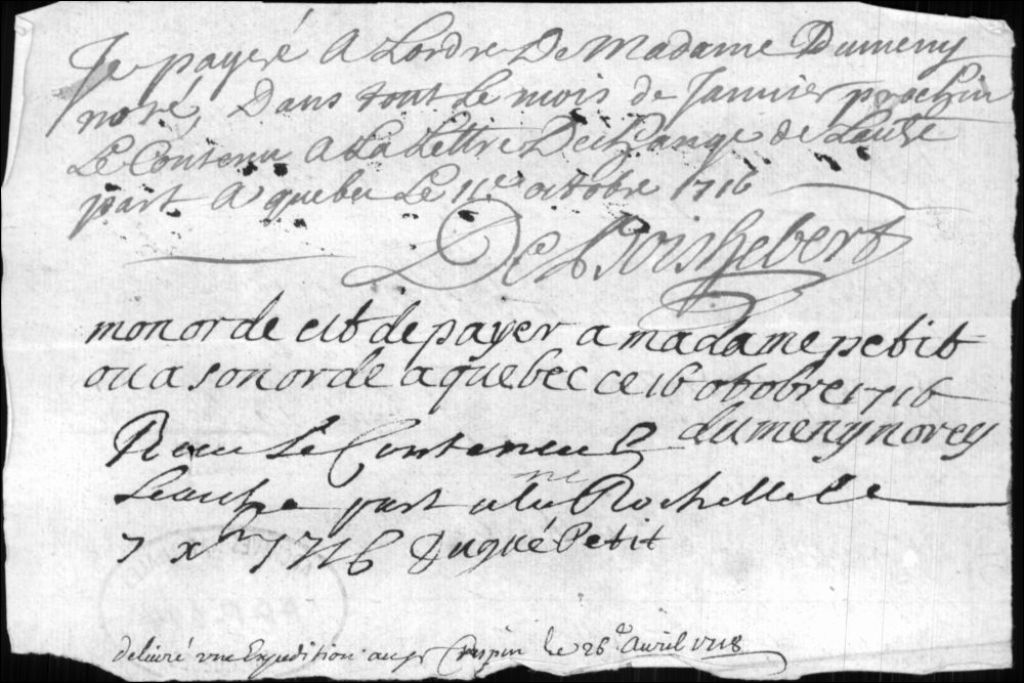 Je payeré A Lordre De Madame Dumeny
noré, Dans tout Le mois de Janvier prochin
Le Contenu A La Lettre Dechange de Lautre
part A quebec Le 11e octobre 1716
De Boishebert
mon orde est de payer a madame petit
ou a son orde a quebec ce 16 otobre 1716
dumeny norey
Receu Le Conteneu
Leautre part a la Rochelle Le
7 xbre 1716 Duqué Petit
delivré une Expedition au sr Crespin Le 26e Avril 1718